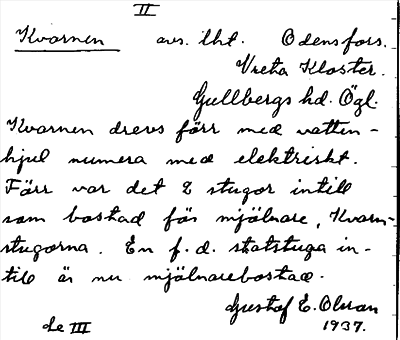 II
Kvarnen avs. lht. Odensfors.
Vreta Kloster.
Gullbergs hd. Ögl.
Kvarnen drevs förr med vatten-
hjul numera med elektriskt.
Förr var det 2 stugor intill
som bostad för mjölnare, Kvarn-
stugorna. En f. d. statstuga in-
till är nu mjölnarebostad.
Gustaf E. Olsson
de III 1937.